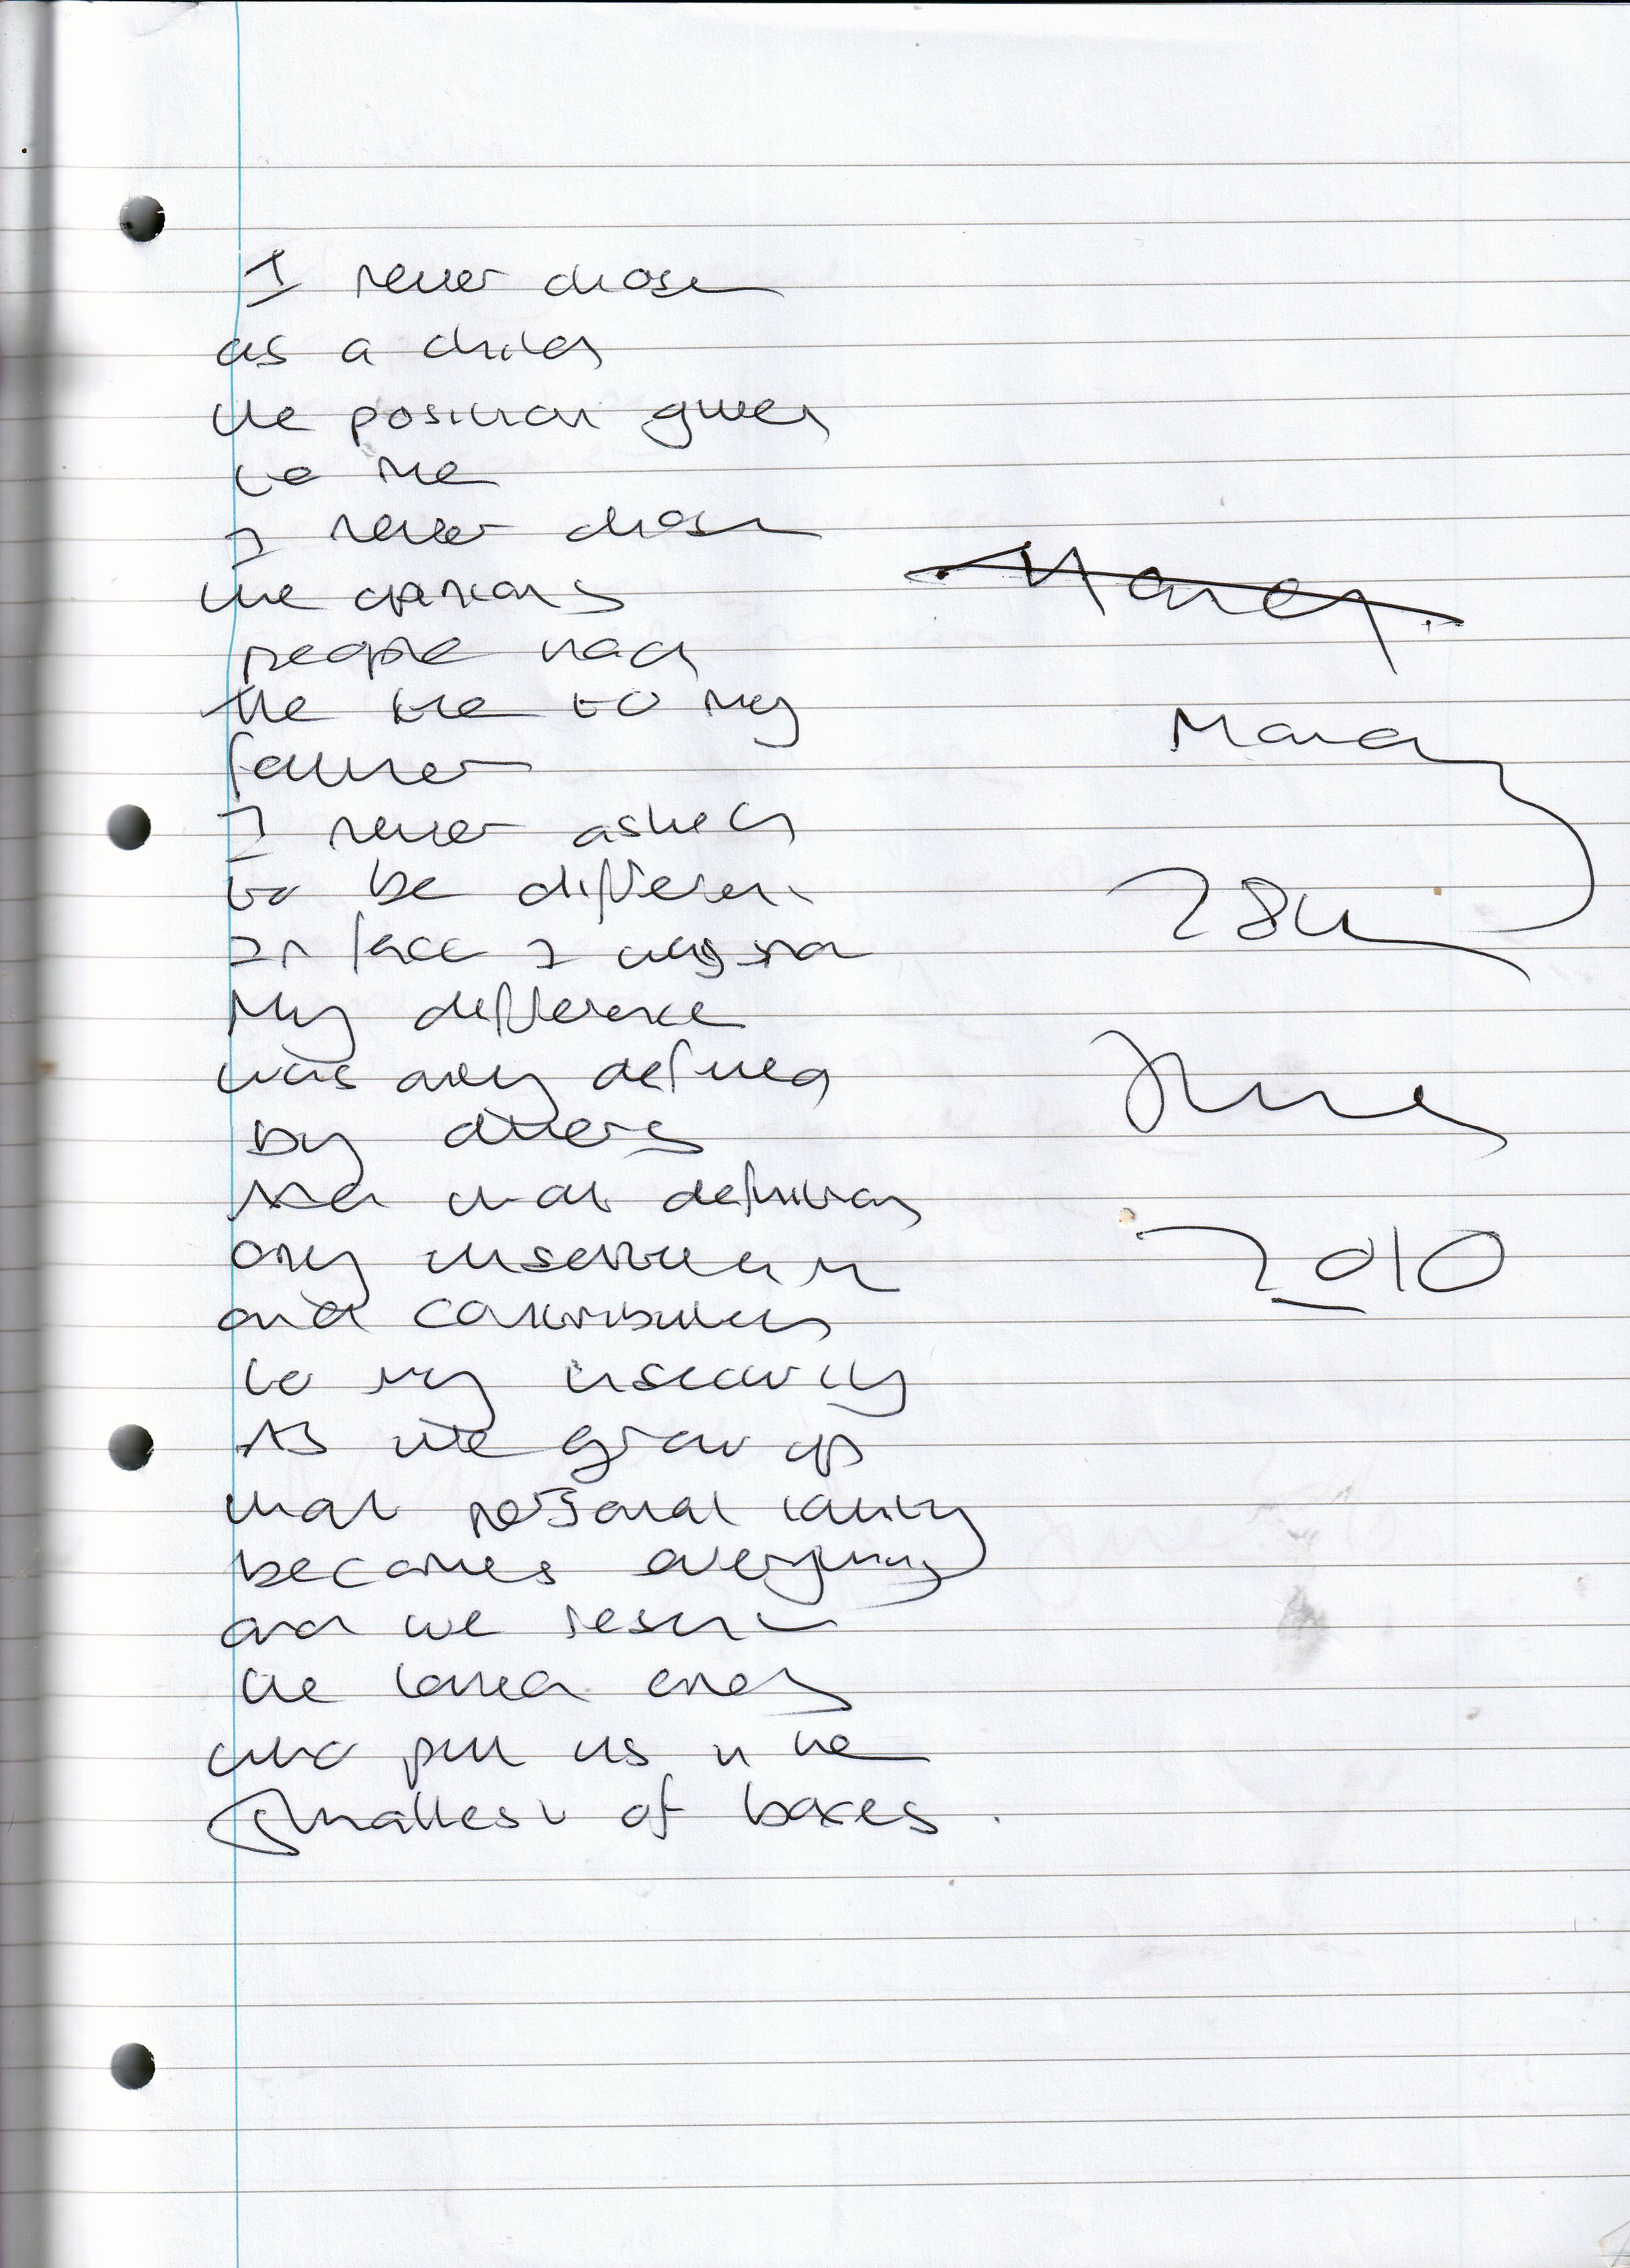 I never chose
as a child
the position given
to me
I never chose
the opinions
people had
the to my
father
I never asked
to be different
In fact I wasn't
My difference
was only defined
by others
And that definition
only
and contributed
to my insecurity
As we grow up
that personal
becomes everything
and we resent
the loved ones
who put us in the
smallest of boxes.
Monday
28th
June
2010